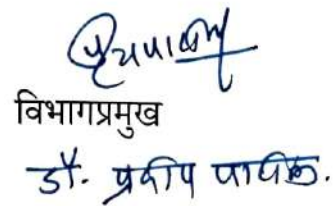 विभागप्रमुख
डॉ. प्रदीप पाटील.